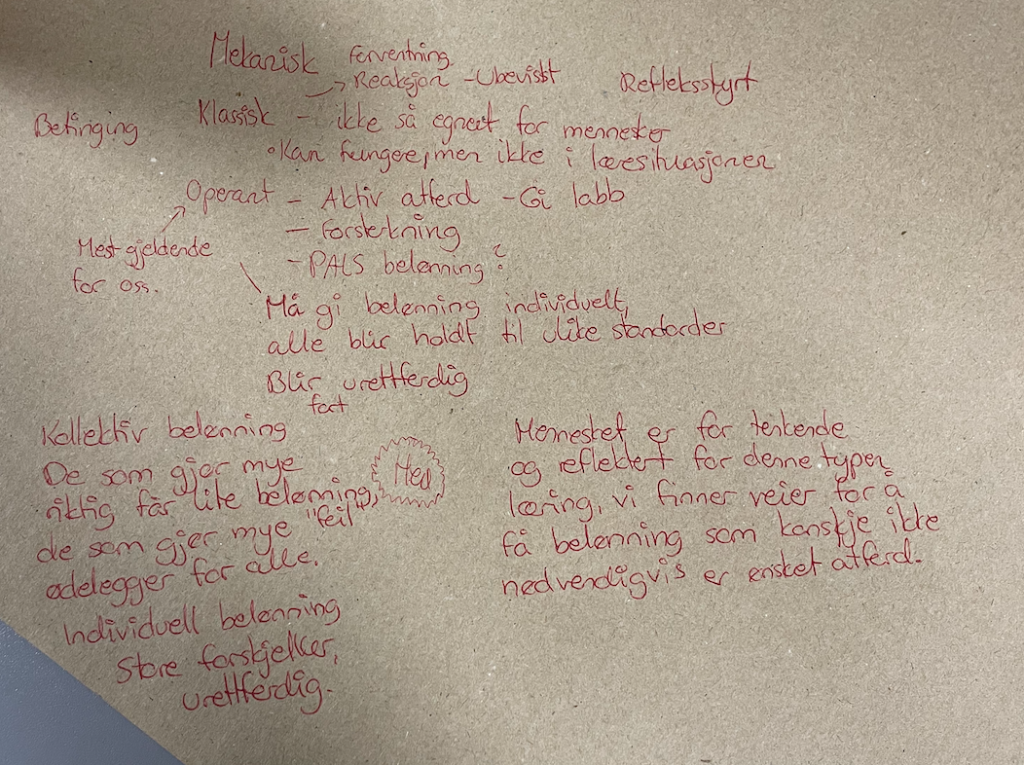 Mekanisk forventning
→ Reaksjon - Ubevisst
Refleksstyrt
Betinging
Klassisk - ikke så egnet for mennesker
• Kan fungere, men ikke i læresituasjoner
Operant - Aktiv atferd - Gi labb
- Forsterkning
- PALS belønning?
Mest gjeldende
for oss.
Må gi belønning individuelt,
alle blir holdt til ulike standarder
Blir urettferdig
fort
Kollektiv belønning
De som gjør mye
riktig får lite belønning,
de som gjør mye "feil"
ødelegger for alle.
Individuell belønning
Store forskjeller,
urettferdig.
Mennesket er for tenkende
og reflektert for denne typen
læring, vi finner veier for å
få belønning som kanskje ikke
nødvendigvis er ønsket atferd.